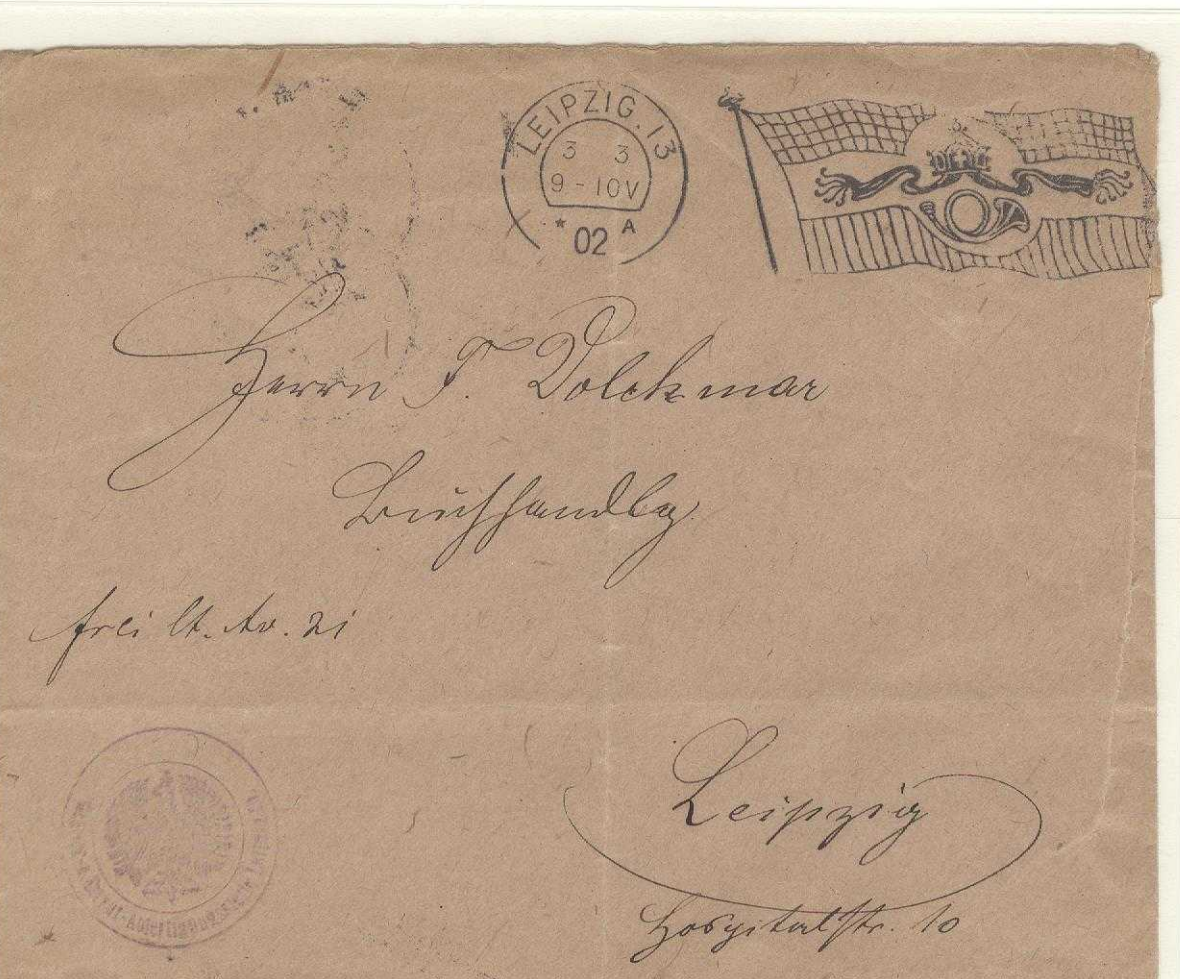 LEIPZIG. 13
3 3
9 - 10V
* 02 A
Herrn F. Volckmar
Buchhandlg
frei lt. Av. 21
Leipzig
Hospitalstr. 10